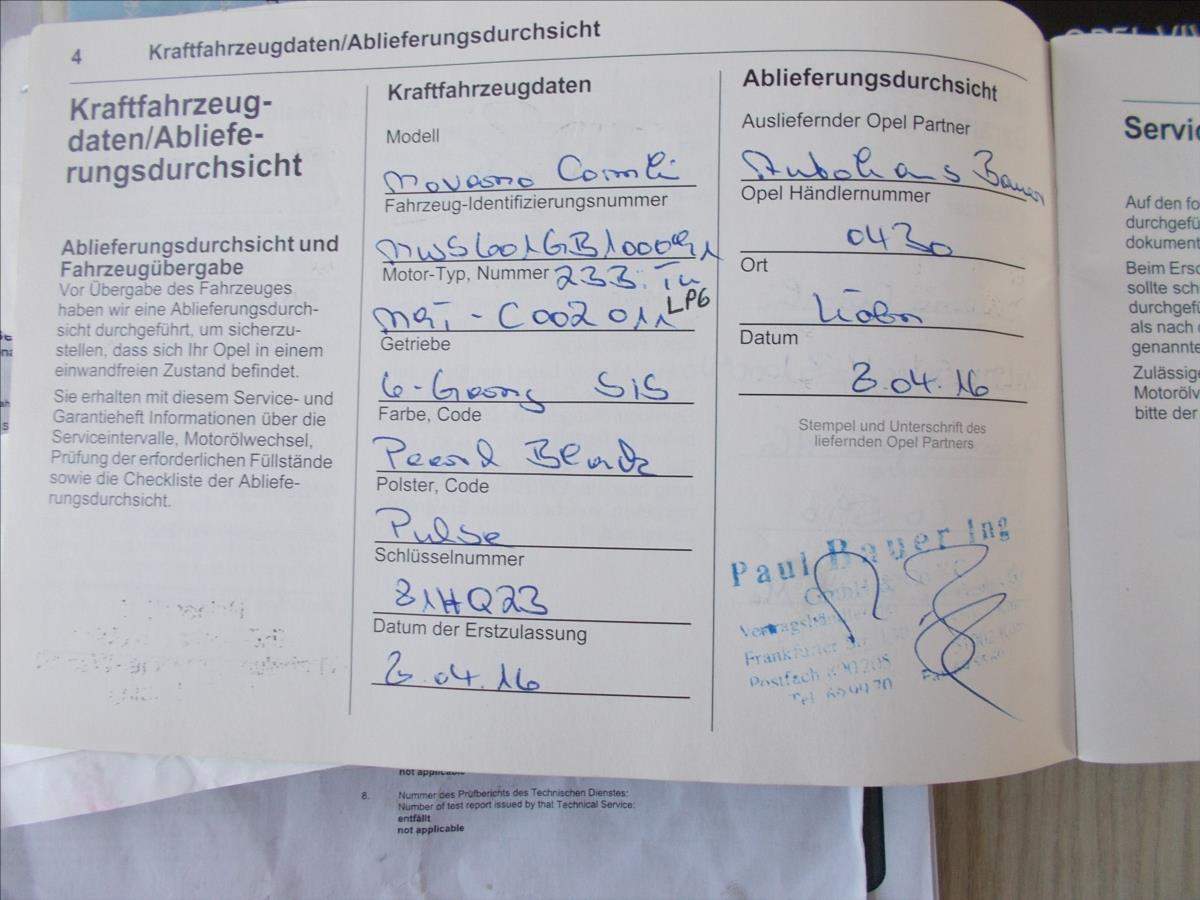 4 Kraftfahrzeugdaten/Ablieferungsdurchsicht
Kraftfahrzeug-
daten/Abliefe-
rungsdurchsicht
Ablieferungsdurchsicht und
Fahrzeugübergabe
Vor Übergabe des Fahrzeuges
haben wir eine Ablieferungsdurch-
sicht durchgeführt, um sicherzu-
stellen, dass sich Ihr Opel in einem
einwandfreien Zustand befindet.
Sie erhalten mit diesem Service- und
Garantieheft Informationen über die
Serviceintervalle, Motorölwechsel,
Prüfung der erforderlichen Füllstände
sowie die Checkliste der Abliefe-
rungsdurchsicht.
Kraftfahrzeugdaten
Modell
Movano Combi
Fahrzeug-Identifizierungsnummer
Motor-Typ, Nummer 233.
LPG
C002011
Getriebe
6-Gang SIS
Farbe, Code
Polster, Code
Pulse
Schlüsselnummer
81HQ23
Datum der Erstzulassung
04.16
Ablieferungsdurchsicht
Ausliefernder Opel Partner
Autohaus Bauer
Opel Händlernummer
0430
Ort
Köln
Datum
04.16
Stempel und Unterschrift des
liefernden Opel Partners
Paul Bauer Ing
GmbH &
Frankfurter
Postfach
Tel.
Servic
Auf den fo
durchgefü
dokument
Beim Ersc
sollte sch
durchgefü
als nach
genannte
Zulässige
Motorölv
bitte der
not applicable
8. Nummer des Prüfberichts des Technischen Dienstes:
Number of test report issued by that Technical Service:
entfällt
not applicable